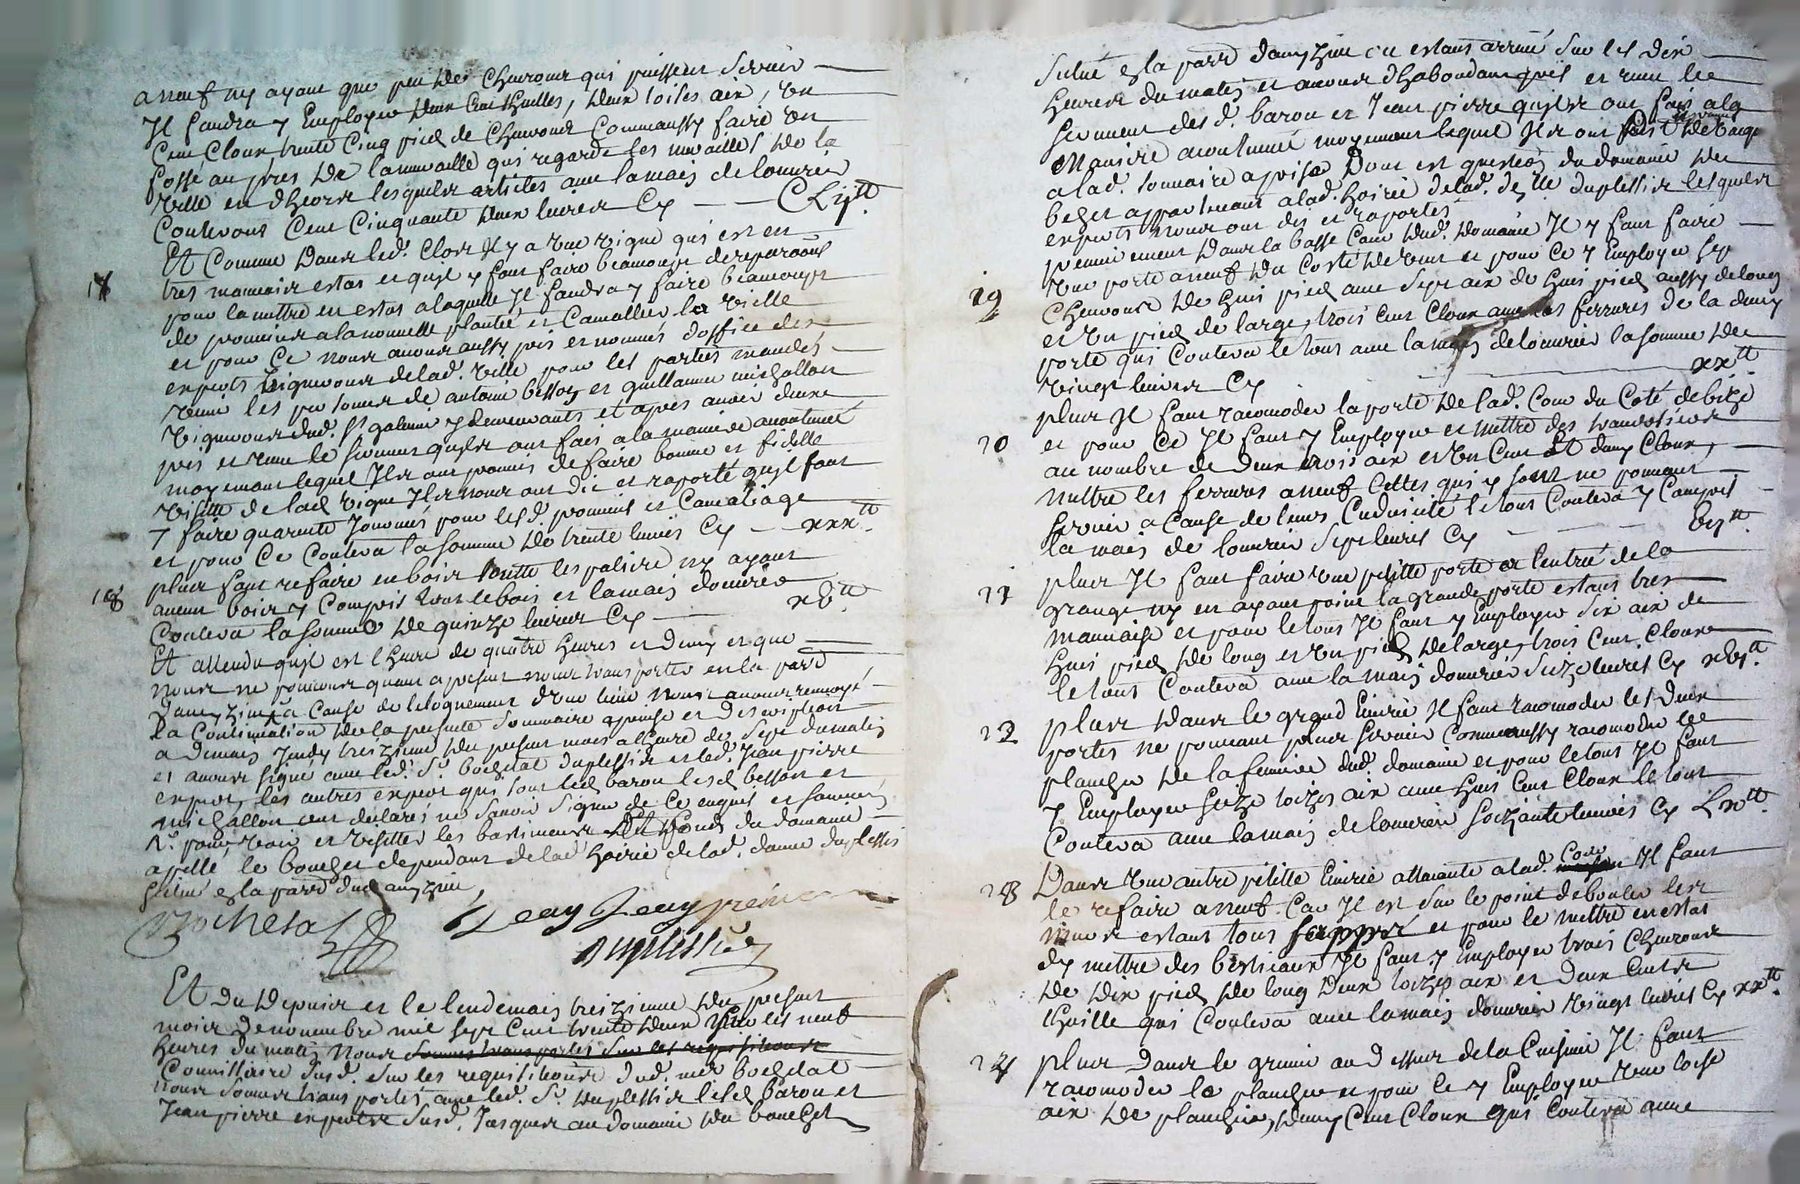 a neuf ny ayant que peu des chevrons qui puissent servir
Il faudra y employer deux cent thuilles, deux toises aix, un
cent cloux trente cinq pied de chevrons comm aussy faire un
fosse au pres de la muraille qui regarde les murailles de la
ville en dheors lesquels articles avec la main de louvrier
coutevont cent cinquante deux livres cy — CLij tt.
17
Et comme dans led. clos il y a une vigne qui est en
tres mauvais estat et quil y faut faire beaucoup de reparaons
pour la mettre en estat a laquelle il faudra y faire beaucoup
de provins a la nouvelle plantée et camallier la vielle
et pour ce nous avons aussy pris et nommés doffice des
experts vignerons de lad. ville pour les parties mandés
venir les personnes de antoine besson et guillaume michallon
vignerons dud. St galmier y demeurants et apres avoir deux
pris et receu le serment quils ont fait a la maniere acoutumée
moyenant lequel ils ont promis de faire bonne et fidelle
visitte de lad. vigne ils nous ont dit et raporté quil faut
y faire quarante journées pour lesd. provins et camaliage
et pour ce coutera la somme de trente livres cy — xxx tt.
18
plus faut refaire en bois toutte les palisse ny ayant
aucun bois y compris tout le bois et la main douvrier
coutera la somme de quinze livres cy — xv tt.
Et attendu quil est lheure de quatre heures et demy et que
nous ne pouvons quant a present nous transporter en la parr
daveyzieu a cause de leloignement dune lieue nous avons renvoyé
la continuation de la presente sommaire aprise et description
a demain jeudy treizieme du present mois a lheure de sept du matin
et avons signé avec led. Sr. bochetat duplessis et led. Jean pierre
expert, les autres expers qui sont led. baron lesd. besson et
michallon ont declarés ne savoir signer de ce enquis et sommés
N. pour voir et visitter les bastiments et fonds du domaine
apellé le bouchet dependant de lad. hoirie de lad. dame duplessis
situé en la parr daveyzieu
Bochetat Jean Jean pierre
duplessis
Et du depuis et le lendemain treizieme du present
mois de novembre mil sept cent trente deux sur les neuf
heures du matin nous sommes transportés sur les requisitions
commissaire susd. sur les requisitions dud. me bochetat
nous sommes transportés avec led. Sr. duplessis lesd. baron et
Jean pierre experts susd. jusques au domaine du bouchet
situé en la parr daveyzieu ou estant arrivé sur les dix
heures du matin et avons dhabondant pris et receu le
serment desd. baron et Jean pierre quils ont fait a la
maniere acoutumée moyenant lequel ils ont
a lad. sommaire aprise dont est question du domaine du
bouchet appartenant a lad. hoirie de lad. delle duplessis lesquels
experts nous ont dit et raportés
19
premierement dans la basse cour dud. domaine il y faut faire
une porte a neuf du costé de vent et pour ce y employer
chevrons de huit pied avec sept aix de huit pied aussy de long
et un pied de large, trois cent cloux avec les ferrures de la
porte qui coutera le tout avec la main de louvrier la somme de
vingt livres cy — xx tt.
20
plus il faut racomoder la porte de lad. cour du coté de bize
et pour ce il faut y employer et mettre des
au nombre de deux trois aix et un cent et demy cloux,
mettre les ferrures a neuf celles qui y sont ne pouvant
servir a cause de leurs le tout coutera y compris
la main de louvrier sept livres cy — vij tt.
21
plus il faut faire une petitte porte a lentrée de la
grange ny en ayant point la grande porte estant tres
mauvaise et pour le tout il faut y employer six aix de
huit pied de long et un pied de large, trois cent cloux
le tout coutera avec la main douvrier seize livres cy xvj tt.
22
plus dans le grand Ecurie il faut racomoder les deux
portes ne pouvant plus servir comm aussy racomoder le
plancher de la feniere dud. domaine et pour le tout il faut
y employer seize toizes aix avec huit cent cloux le tout
coutera avec la main de louvrier soixante livres cy Lx tt.
23
Dans une autre petitte Ecurie attenante a lad. Cour il faut
le refaire a neuf car il est sur le point debouler les
murs estant tous et pour le mettre en estat
dy mettre des bestiaux il faut y employer trois chevrons
de dix pied de long deux toizes aix et deux cents
thuille qui coutera avec la main douvrier vingt livres cy xx tt.
24
plus dans le grenier au dessus de la cuisine il faut
racomoder le plancher et pour le y employer une toise
aix de plancher, demy cent cloux qui coutera avec